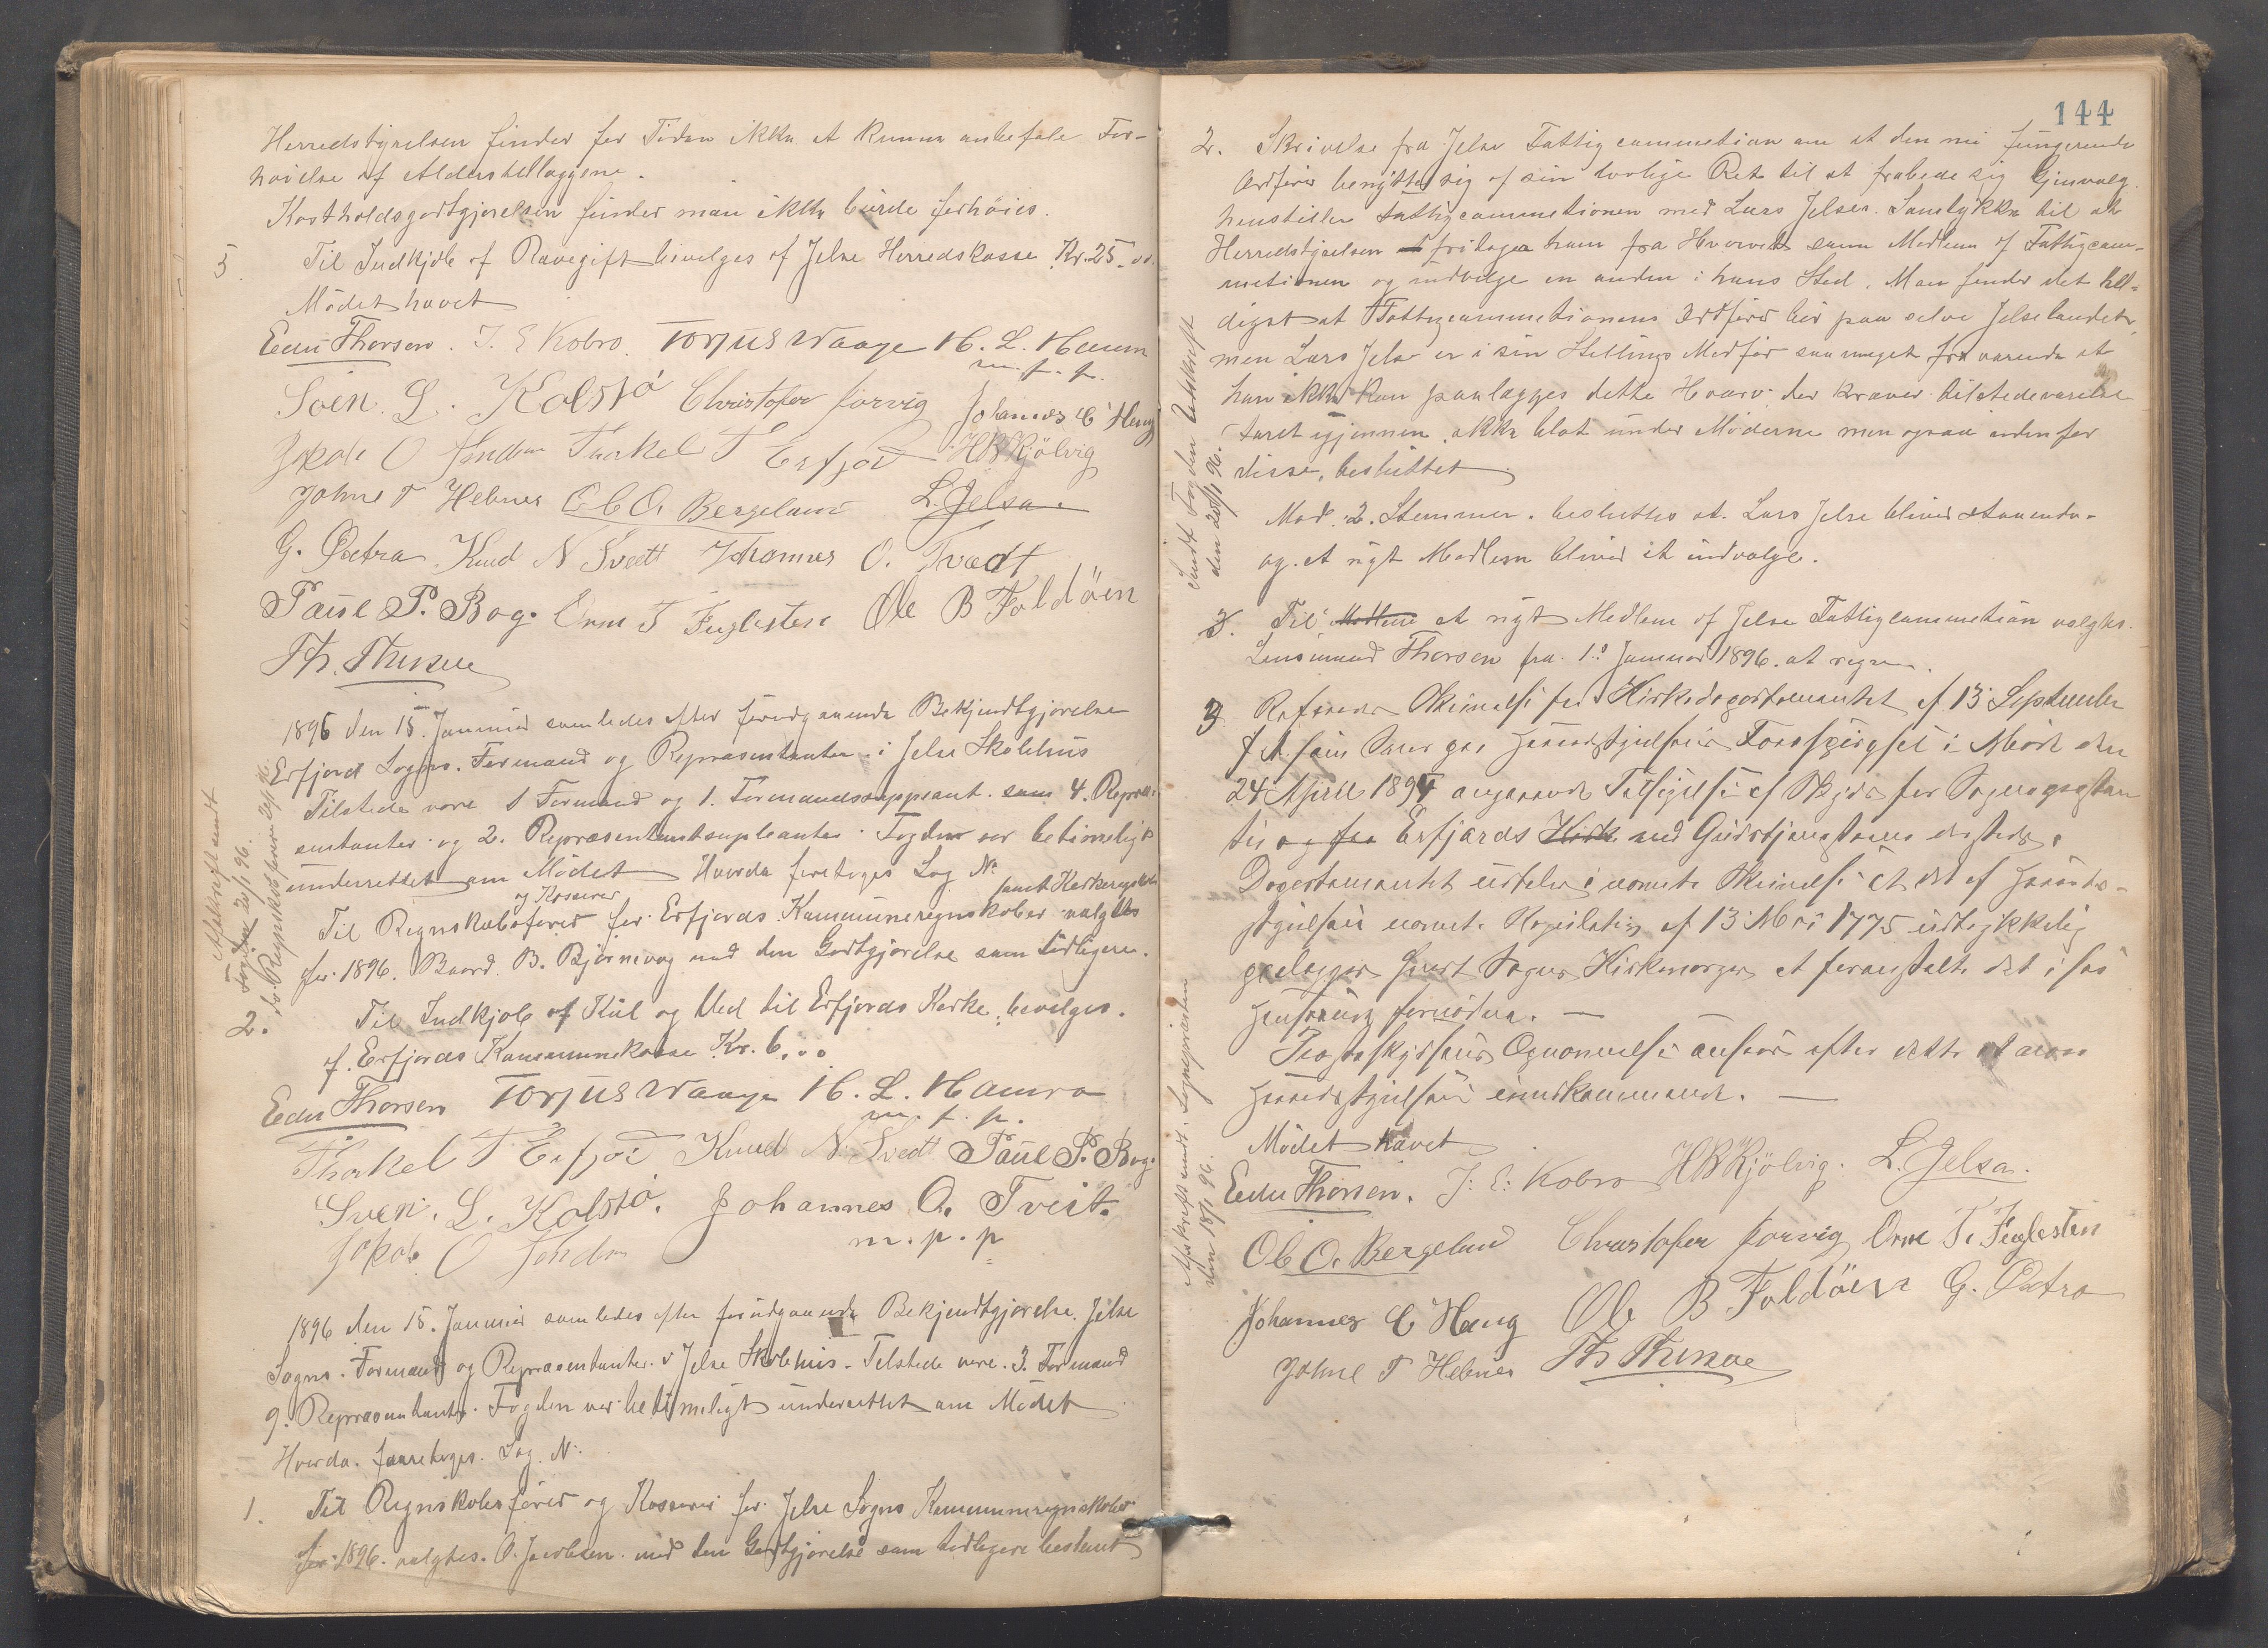 Herredstyrelsen finder for Tiden ikke at kunne anbefale For-
høielse af Alderstillæggene.
Kostholdsgodtgjørelsen finder man ikke burde forhöies.
5. Til Indkjøb af Rævegift bevelges af Jelse Herredskasse Kr. 25.00.
Mödet hævet
Eedu Thorsen. J. E Kobro. Torjus Waage H. L. Hamra
m. f. p.
Sven. L. Kolstö Christofer Jorvig Johannes C Haug
Jakob O Thorkel T Erfjod HBKjölvig
Johne T Hebnes Ob O. Bergelund L. Jelsa.
G. Østra Knud N Tvedt Johannes O. Tvedt
Paul P. Bog. Orm T Fuglesten Ole B Foldöen
Th.
1896 den 15. Januar samledes efter forudgaaende Bekjendtgjørelse
Erfjord Sogns. Formænd og Repræsentanter i Jelse Skolehus
Tilstede vare 1 Formand og 1. Formandssuppleant. sam 4. Repræ-
sentanter og 2. Repræsentantsupleanter. Fogden var betimeligt
underrettet om Mödet Hvorda foretoges Sag No
og Kasserer samt Kirkeregnskab
Til Regnskabsförer for Erfjords Kommuneregnskaber valgtes
for 1896. Baard. B. Bjørnevag med den Godtgjørelse sam tidligere.
Afskrift sendt
Fogden 20/1 96.
do. Regnskabsförer 20/1 96.
2. Til Indkjøb af Kul og Ved til Erfjords Kirke, bevelges.
af. Erfjords Kommunekasse Kr. 6,00
Eedu Thorsen Torjus Waage H. L. Hamra
m. f. p.
Thorkel T Erfjod Knud N Tvedt Paul P. Bog.
Sven. L. Kolstö. Johannes O. Tveit.
Jakob O m. p. p
1896 den 15. Januar samledes efter forudgaaende Bekjendtgjørelse. Jelse
Sogns. Formænd og Repræsentanter. i Jelse Skolehus. Tilstede vare. 3. Formænd
9. Repræsentanter. Fogden var betimeligt underrettet om Mödet
Hvorda. foretoges. Sag N.
1. Til Regnskabsförer og Kasserer for. Jelse Sogns Kommuneregnskaber
for 1896. valgtes. O. Jacobsen. med den Godtgjørelse sam tidligere bestemt
144
2. Skrivelse fra Jelse Fattigcommetion om at den nu fungerende
Ordförer benytter sig af sin lovlige Ret til at frabede sig Gjenvalg.
henstiller Fattigcommetionen med Lars Jelses. Samtykke til at
Herredstyrelsen fritager ham fra Hvervet som Medlem af Fattigcom-
metionen og udvelge en anden i hans Sted. Man finder det hel-
digst at Fattigcommetionens Ordförer bor paa selve Jelselandet,
men Lars Jelse er i sin Stillings Medför saa meget fraværende at
han ikke kan paalægges dette Hverv der kræver tilstedeværelse
Aaret igjennem, ikke blot under Møderne men ogsaa udenfor
disse, besluttet
Sendt Fogden Udskrift
den 20/1 96.
Mod. 2. Stemmer. besluttes at. Lars Jelse bliver staaende
og. et nyt Medlem bliver at indvælge.
3. Til Medlem et nyt Medlem af Jelse Fattigcommetion valgtes.
Lensmand Thorsen fra. 1. Januar 1896. at regne.
3. Refereredes Skrivelse fra Kirkedepartementet af 13 September
f A som Svar paa Herredsstyrelsens Forespörgsel i Möde den
24 April 1895 angaaende Tilsigelse af Skyds for Sognepræsten
til og fra Erfjords Kirke ved Gudstjenesterne dersteds.
Departementet udtaler i nævnte Skrivelse at det af Herreds-
styrelsen nævnte Regulativ af 13 Mai 1775 udtrykkelig
paalægger hvert Sogns Kirkeværger at foranstalte det i saa
Henseende fornødne. —
Præsteskydsens Opnævnelse ansees efter dette at være
Herredsstyrelsen uvedkommende. —
Afskrift sendt. Sognepræsten
den 18/1 96.
Mödet hævet
Eedu Thorsen. J. E. Kobro HBKjölvig. L. Jelsa.
Ob O. Bergelund Christofer Jorvig Orm T. Fuglesten
Johannes C Haug Ole B Foldöen G. Østra
Johne T Hebnes Th